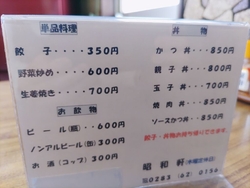 単品料理
餃子････350円
野菜炒め････600円
生姜焼き････700円
お飲物
ビール(瓶)･･･600円
ノンアルビール(缶)300円
お酒(コップ)300円
丼物
かつ丼･････850円
親子丼･････800円
玉子丼･････700円
焼肉丼･････850円
ソースかつ丼･･850円
餃子・丼物お持ち帰りできます。
昭和軒(水曜定休日)
℡0283(62)0156